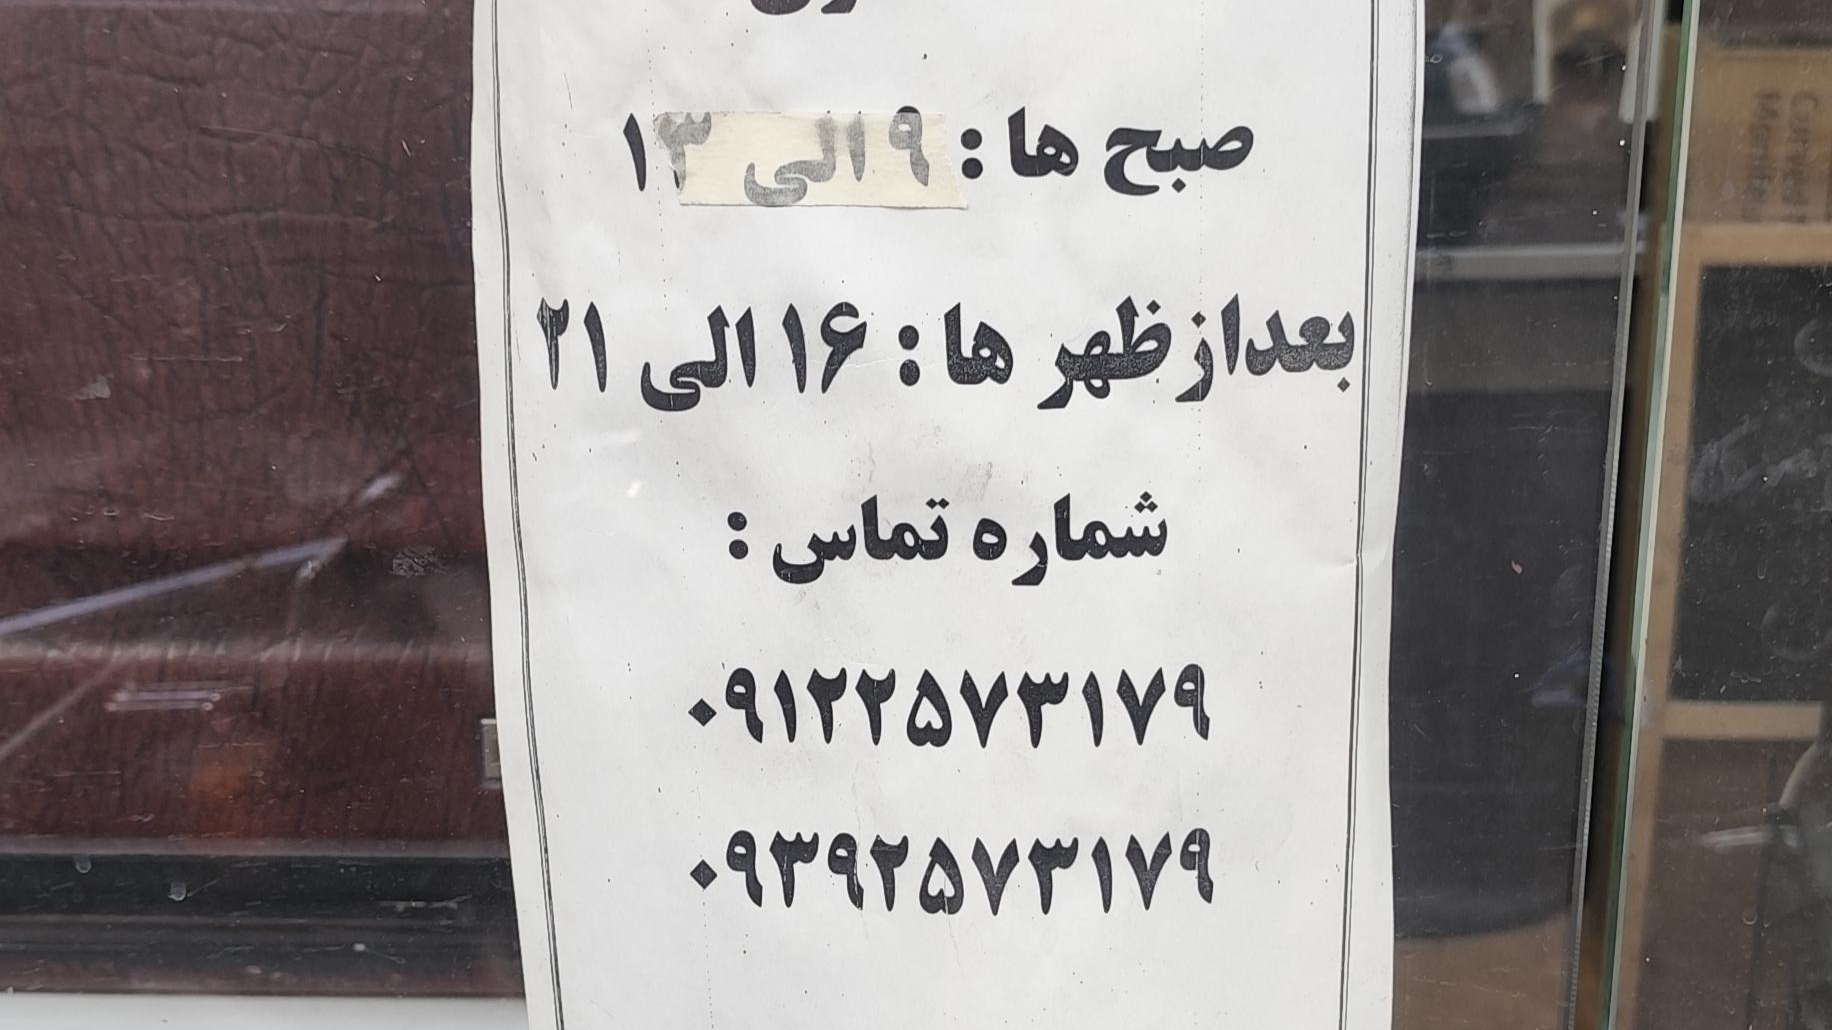 صبح ها : ۹ الی ۱۳
بعدازظهر ها : ۱۶ الی ۲۱
شماره تماس :
۰۹۱۲۲۵۷۳۱۷۹
۰۹۳۹۲۵۷۳۱۷۹